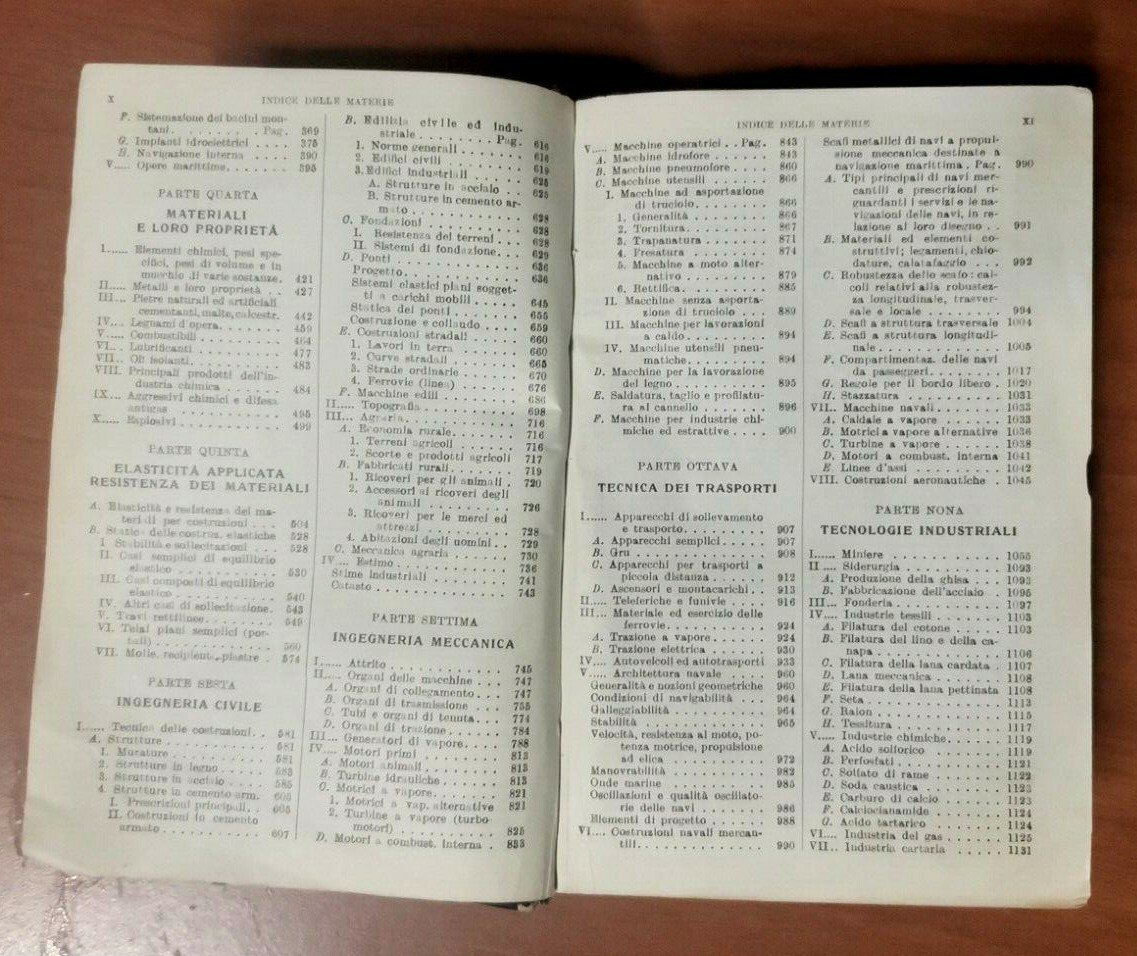 X
INDICE DELLE MATERIE
F. Sistemazione dei bacini mon-
tani. . . . . . . . . Pag. 369
G. Impianti idroelettrici . . . . 375
H. Navigazione interna . . . . 390
V..... Opere marittime. . . . . . 395
PARTE QUARTA
MATERIALI
E LORO PROPRIETÀ
I...... Elementi chimici, pesi spe-
cifici, pesi di volume e in
mucchio di varie sostanze. 421
II..... Metalli e loro proprietà . . 427
III... Pietre naturali ed artificiali
cementanti, malte, calcestr. 442
IV.... Legnami d'opera. . . . . . 459
V..... Combustibili . . . . . . . 464
VI... Lubrificanti . . . . . . . 477
VII.. Oli isolanti. . . . . . . . 483
VIII. Principali prodotti dell'in-
dustria chimica . . . . . . 484
IX... Aggressivi chimici e difesa
antigas . . . . . . . . . 495
X..... Esplosivi . . . . . . . . . 499
PARTE QUINTA
ELASTICITÀ APPLICATA
RESISTENZA DEI MATERIALI
A. Elasticità e resistenza dei ma-
teriali per costruzioni . . . 504
B. Statica delle costruz. elastiche 528
I. Stabilità e sollecitazioni . . 528
II. Casi semplici di equilibrio
elastico . . . . . . . . . 530
III. Casi composti di equilibrio
elastico . . . . . . . . . 540
IV. Altri casi di sollecitazione. 543
V. Travi rettilinee. . . . . . 549
VI. Telai piani semplici (por-
tali) . . . . . . . . . . 560
VII. Molle, recipienti, piastre . 574
PARTE SESTA
INGEGNERIA CIVILE
I...... Tecnica delle costruzioni. . 581
A. Strutture . . . . . . . . . 581
1. Murature . . . . . . . . 581
2. Strutture in legno . . . . 583
3. Strutture in acciaio . . . 585
4. Strutture in cemento arm. 605
I. Prescrizioni principali. . . 605
II. Costruzioni in cemento
armato . . . . . . . . . 607
B. Edilizia civile ed indu-
striale . . . . . . . . Pag. 616
1. Norme generali . . . . . 616
2. Edifici civili . . . . . . 619
3. Edifici industriali . . . . 625
A. Strutture in acciaio . . 625
B. Strutture in cemento ar-
mato . . . . . . . . . 628
C. Fondazioni . . . . . . . . 628
I. Resistenza dei terreni . . . 628
II. Sistemi di fondazione. . . 629
D. Ponti . . . . . . . . . . 636
Progetto. . . . . . . . . . 636
Sistemi elastici piani sogget-
ti a carichi mobili . . . . 645
Statica dei ponti . . . . . . 655
Costruzione e collaudo . . . 659
E. Costruzioni stradali . . . . 660
1. Lavori in terra . . . . . 660
2. Curve stradali . . . . . . 665
3. Strade ordinarie . . . . . 670
4. Ferrovie (linea) . . . . . 676
F. Macchine edili . . . . . . 686
II..... Topografia. . . . . . . . . 698
III... Agraria. . . . . . . . . . 716
A. Economia rurale. . . . . . 716
1. Terreni agricoli . . . . . 716
2. Scorte e prodotti agricoli 717
B. Fabbricati rurali. . . . . . 719
1. Ricoveri per gli animali . 720
2. Accessori ai ricoveri degli
animali . . . . . . . . . 726
3. Ricoveri per le merci ed
attrezzi . . . . . . . . . 728
4. Abitazioni degli uomini . . 729
C. Meccanica agraria . . . . . 730
IV.... Estimo . . . . . . . . . . 736
Stime industriali . . . . . . 741
Catasto. . . . . . . . . . . 743
PARTE SETTIMA
INGEGNERIA MECCANICA
I...... Attrito . . . . . . . . . . 745
II..... Organi delle macchine . . . 747
A. Organi di collegamento . . . 747
B. Organi di trasmissione . . . 755
C. Tubi e organi di tenuta. . . 774
D. Organi di trazione . . . . . 784
III... Generatori di vapore. . . . 788
IV.... Motori primi . . . . . . . 813
A. Motori animali . . . . . . 813
B. Turbine idrauliche. . . . . 813
C. Motrici a vapore. . . . . . 821
1. Motrici a vap. alternative 821
2. Turbine a vapore (turbo
motori) . . . . . . . . . 825
D. Motori a combust. interna . 833
INDICE DELLE MATERIE
XI
V..... Macchine operatrici . . Pag. 843
A. Macchine idrofore. . . . . 843
B. Macchine pneumofore. . . . 860
C. Macchine utensili . . . . . 866
I. Macchine ad asportazione
di truciolo . . . . . . . . 866
1. Generalità . . . . . . . . 866
2. Tornitura. . . . . . . . . 867
3. Trapanatura . . . . . . . 871
4. Fresatura . . . . . . . . 874
5. Macchine a moto alter-
nativo . . . . . . . . . 879
6. Rettifica. . . . . . . . . 885
II. Macchine senza asporta-
zione di truciolo . . . . . 889
III. Macchine per lavorazioni
a caldo . . . . . . . . . 894
IV. Macchine utensili pneu-
matiche. . . . . . . . . . 894
D. Macchine per la lavorazione
del legno . . . . . . . . . 895
E. Saldatura, taglio e profilatu-
ra al cannello . . . . . . . 896
F. Macchine per industrie chi-
miche ed estrattive . . . . 900
PARTE OTTAVA
TECNICA DEI TRASPORTI
I...... Apparecchi di sollevamento
e trasporto. . . . . . . . . 907
A. Apparecchi semplici. . . . . 907
B. Gru . . . . . . . . . . . 908
C. Apparecchi per trasporti a
piccola distanza . . . . . . 912
D. Ascensori e montacarichi. . 913
II..... Teleferiche e funivie . . . 916
III... Materiale ed esercizio delle
ferrovie. . . . . . . . . . 924
A. Trazione a vapore. . . . . 924
B. Trazione elettrica . . . . . 930
IV.... Autoveicoli ed autotrasporti 933
V..... Architettura navale . . . . 960
Generalità e nozioni geometriche 960
Condizioni di navigabilità . . . 964
Galleggiabilità . . . . . . . . 964
Stabilità . . . . . . . . . . . 965
Velocità, resistenza al moto, po-
tenza motrice, propulsione
ad elica . . . . . . . . . . 972
Manovrabilità . . . . . . . . . 982
Onde marine . . . . . . . . . 985
Oscillazioni e qualità oscillato-
rie delle navi . . . . . . . 986
Elementi di progetto . . . . . 988
VI.... Costruzioni navali mercan-
tili. . . . . . . . . . . . 990
Scafi metallici di navi a propul-
sione meccanica destinate a
navigazione marittima. Pag. 990
A. Tipi principali di navi mer-
cantili e prescrizioni ri-
guardanti i servizi e le na-
vigazioni delle navi, in re-
lazione al loro disegno . . 991
B. Materiali ed elementi co-
struttivi; legamenti, chio-
dature, calafataggio . . . 992
C. Robustezza dello scafo: cal-
coli relativi alla robustez-
za longitudinale, trasver-
sale e locale . . . . . . . 994
D. Scafi a struttura trasversale 1004
E. Scafi a struttura longitudi-
nale . . . . . . . . . . . 1005
F. Compartimentaz. delle navi
da passeggeri. . . . . . . 1017
G. Regole per il bordo libero . 1020
H. Stazzatura . . . . . . . . 1031
VII.. Macchine navali. . . . . . 1033
A. Caldaie a vapore . . . . . 1033
B. Motrici a vapore alternative 1036
C. Turbine a vapore . . . . . 1038
D. Motori a combust. interna 1041
E. Linee d'assi . . . . . . . 1042
VIII. Costruzioni aeronautiche . 1045
PARTE NONA
TECNOLOGIE INDUSTRIALI
I...... Miniere . . . . . . . . . . 1055
II..... Siderurgia . . . . . . . . 1093
A. Produzione della ghisa . . . 1093
B. Fabbricazione dell'acciaio . 1095
III... Fonderia. . . . . . . . . . 1097
IV.... Industrie tessili . . . . . . 1103
A. Filatura del cotone . . . . 1103
B. Filatura del lino e della ca-
napa . . . . . . . . . . . 1106
C. Filatura della lana cardata . 1107
D. Lana meccanica . . . . . . 1108
E. Filatura della lana pettinata 1108
F. Seta . . . . . . . . . . . 1113
G. Raion . . . . . . . . . . 1115
H. Tessitura . . . . . . . . . 1117
V..... Industrie chimiche. . . . . 1119
A. Acido solforico . . . . . . 1119
B. Perfosfati. . . . . . . . . 1121
C. Solfato di rame . . . . . . 1122
D. Soda caustica . . . . . . . 1123
E. Carburo di calcio . . . . . 1123
F. Calciocianamide . . . . . . 1124
G. Acido tartarico . . . . . . 1124
VI.... Industria del gas . . . . . 1125
VII.. Industria cartaria . . . . . 1131